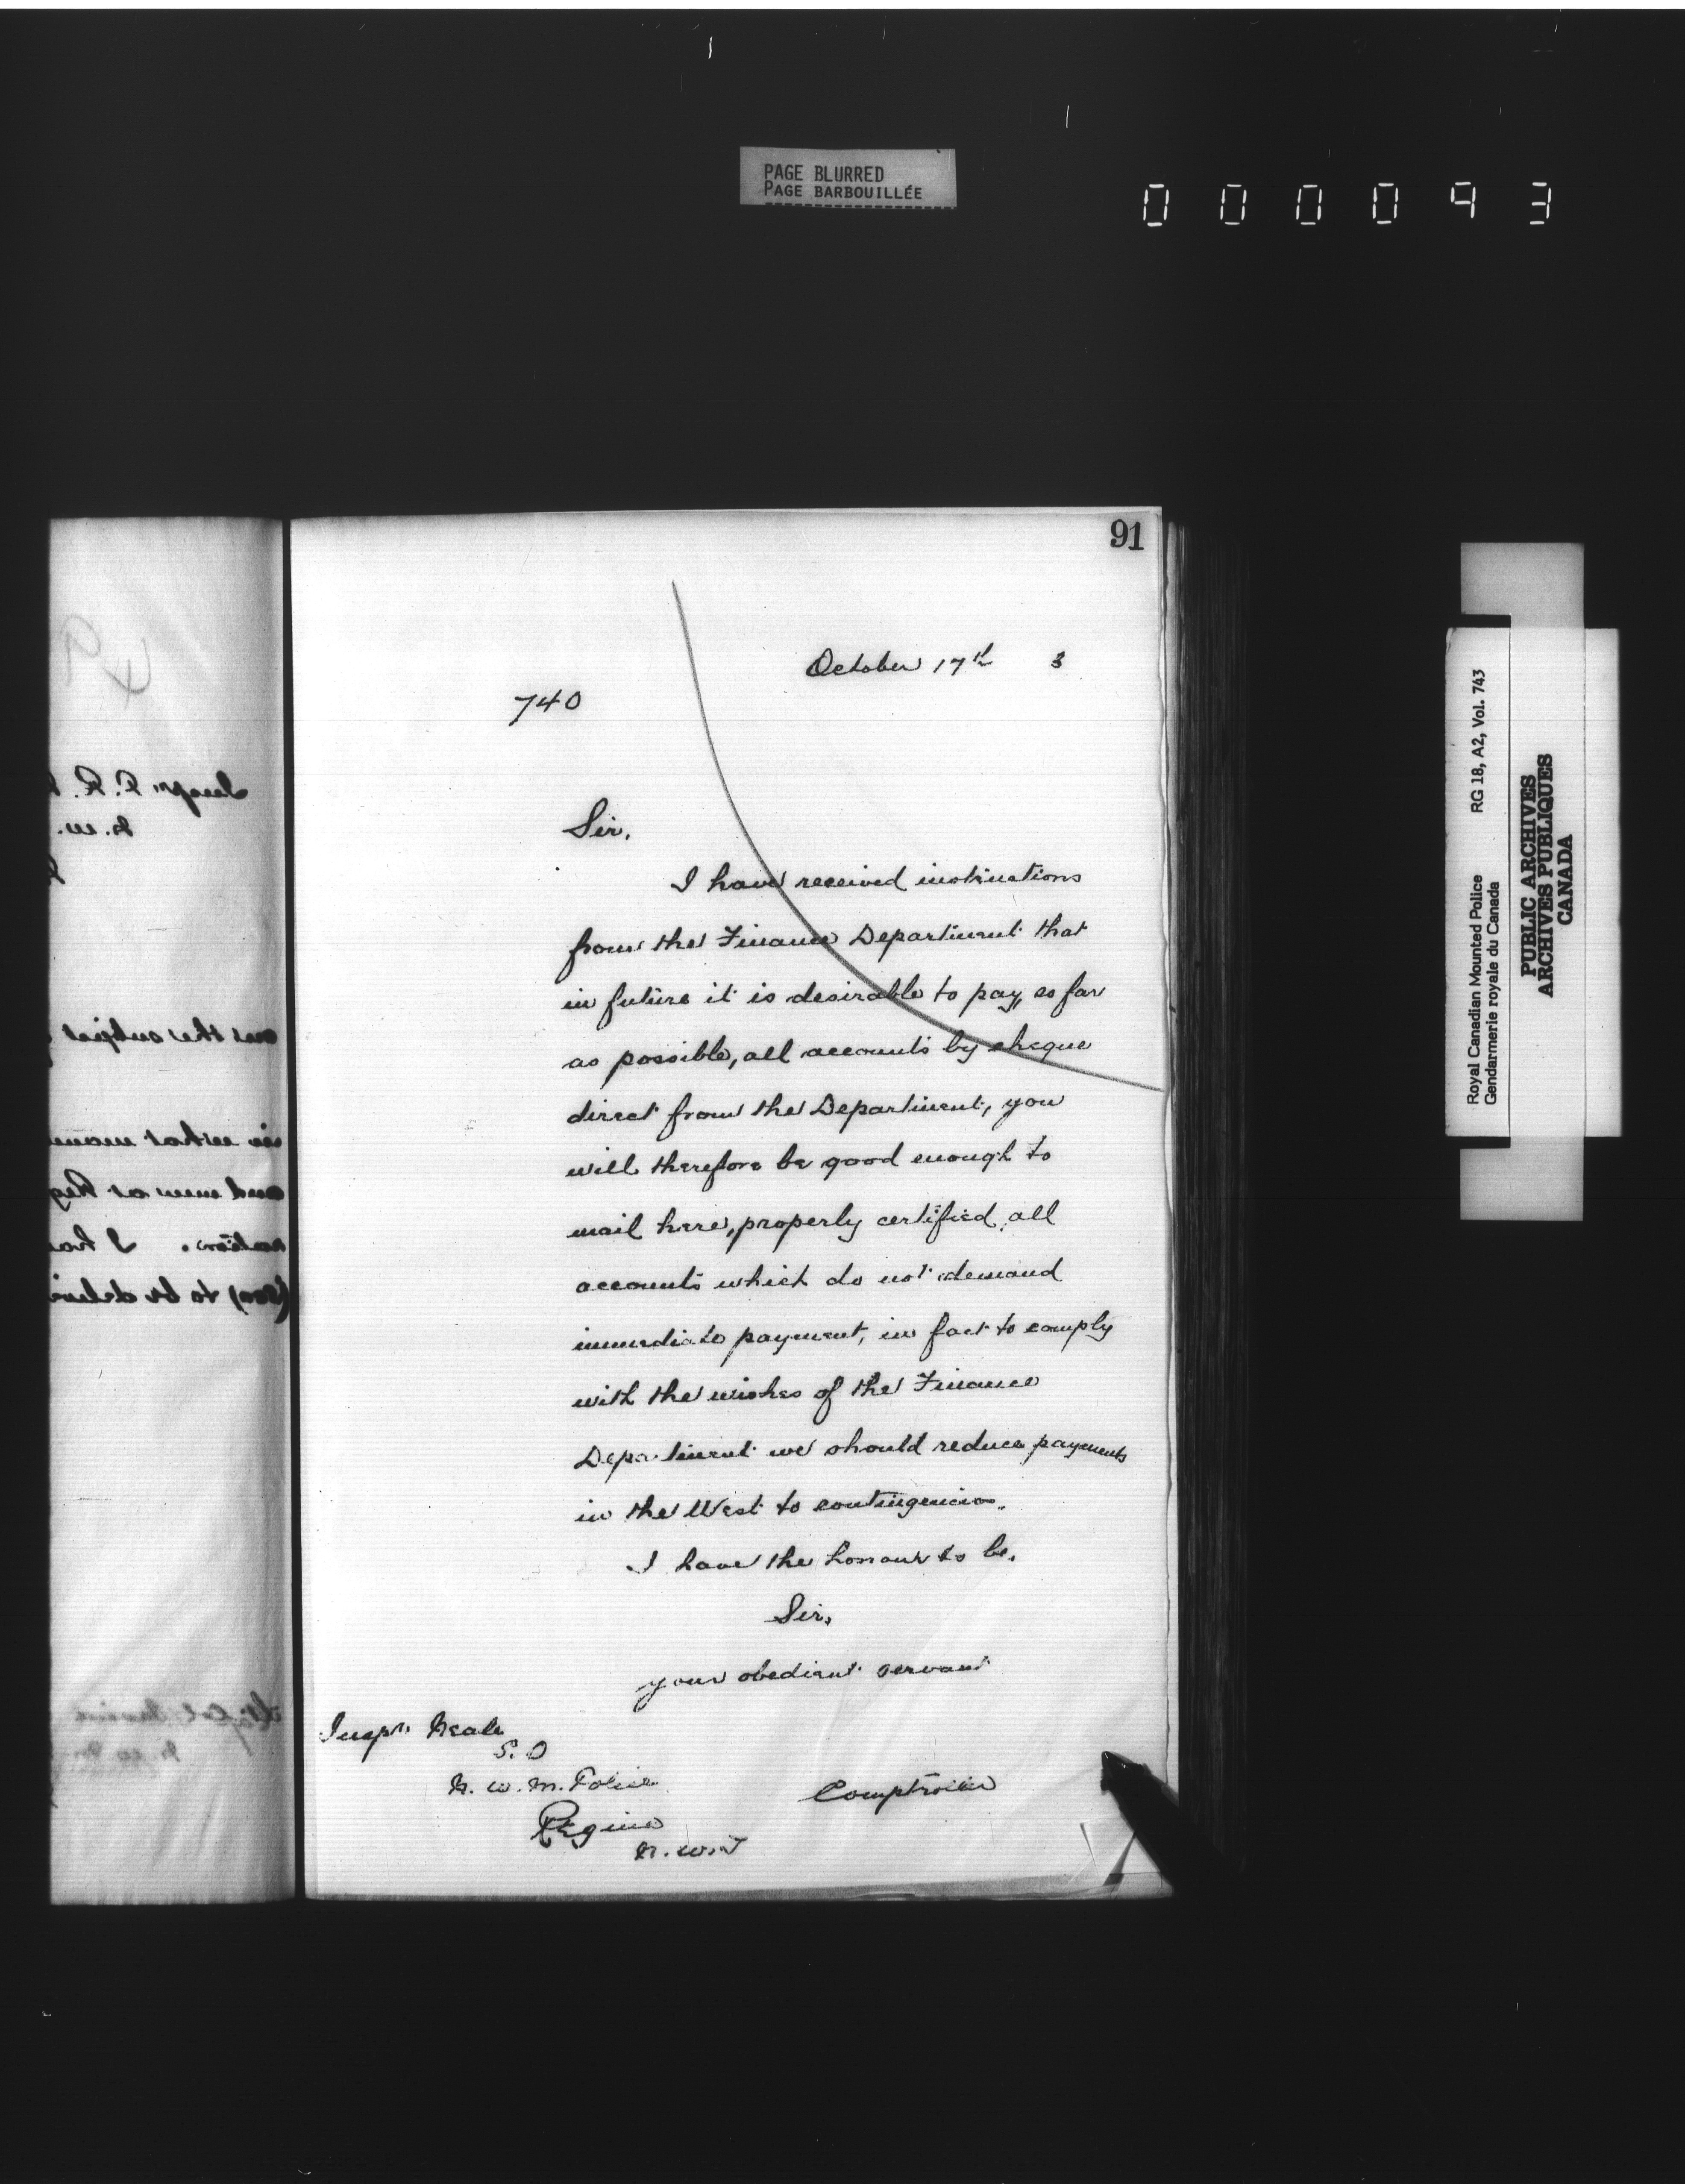 PAGE BLURRED
PAGE BARBOUILLÉE
000093
91
October 17th 3
740
Sir,
I have received instructions
from the Finance Department that
in future it is desirable to pay, as far
as possible, all accounts by cheque
direct from the Department, you
will therefore be good enough to
mail here, properly certified, all
accounts which do not demand
immediate payment, in fact to comply
with the wishes of the Finance
Department we should reduce payments
in the West to contingencies.
I have the honour to be,
Sir,
your obedient servant
Inspr. Neale
S. O
N. W. M. Police
Regina
N. W. T
Comptroller
Royal Canadian Mounted Police RG 18, A2, Vol. 743
Gendarmerie royale du Canada
PUBLIC ARCHIVES
ARCHIVES PUBLIQUES
CANADA